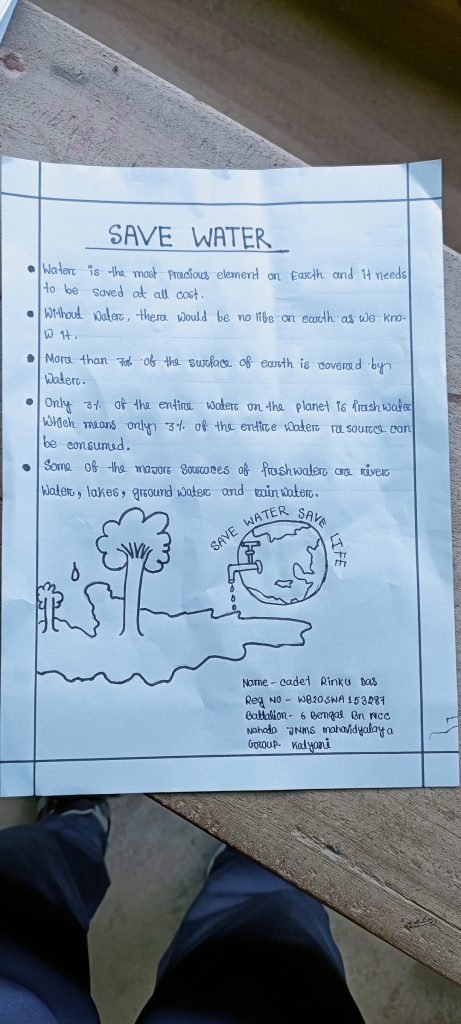 SAVE WATER
• Water is the most pracious element on Earth and it needs
to be saved at all cost.
• Without water, thera would be no life on earth as we kno-
w it.
• Mora than 70% of the surface of earth is covered by
water.
• Only 3% of the entire water on the planet is frashwater
Which means only 3% of the entire water rasource can
be consumed.
• Some of the majors sources of frashwater are river
water, lakes, ground water and rain water.
SAVE WATER SAVE LIFE
Name - cadet Rinku Das
Reg NO - WB20SWA153287
Battalion - 6 Bengal Bn NCC
Nahata JNMS mahavidyalaya
Group- Kalyani